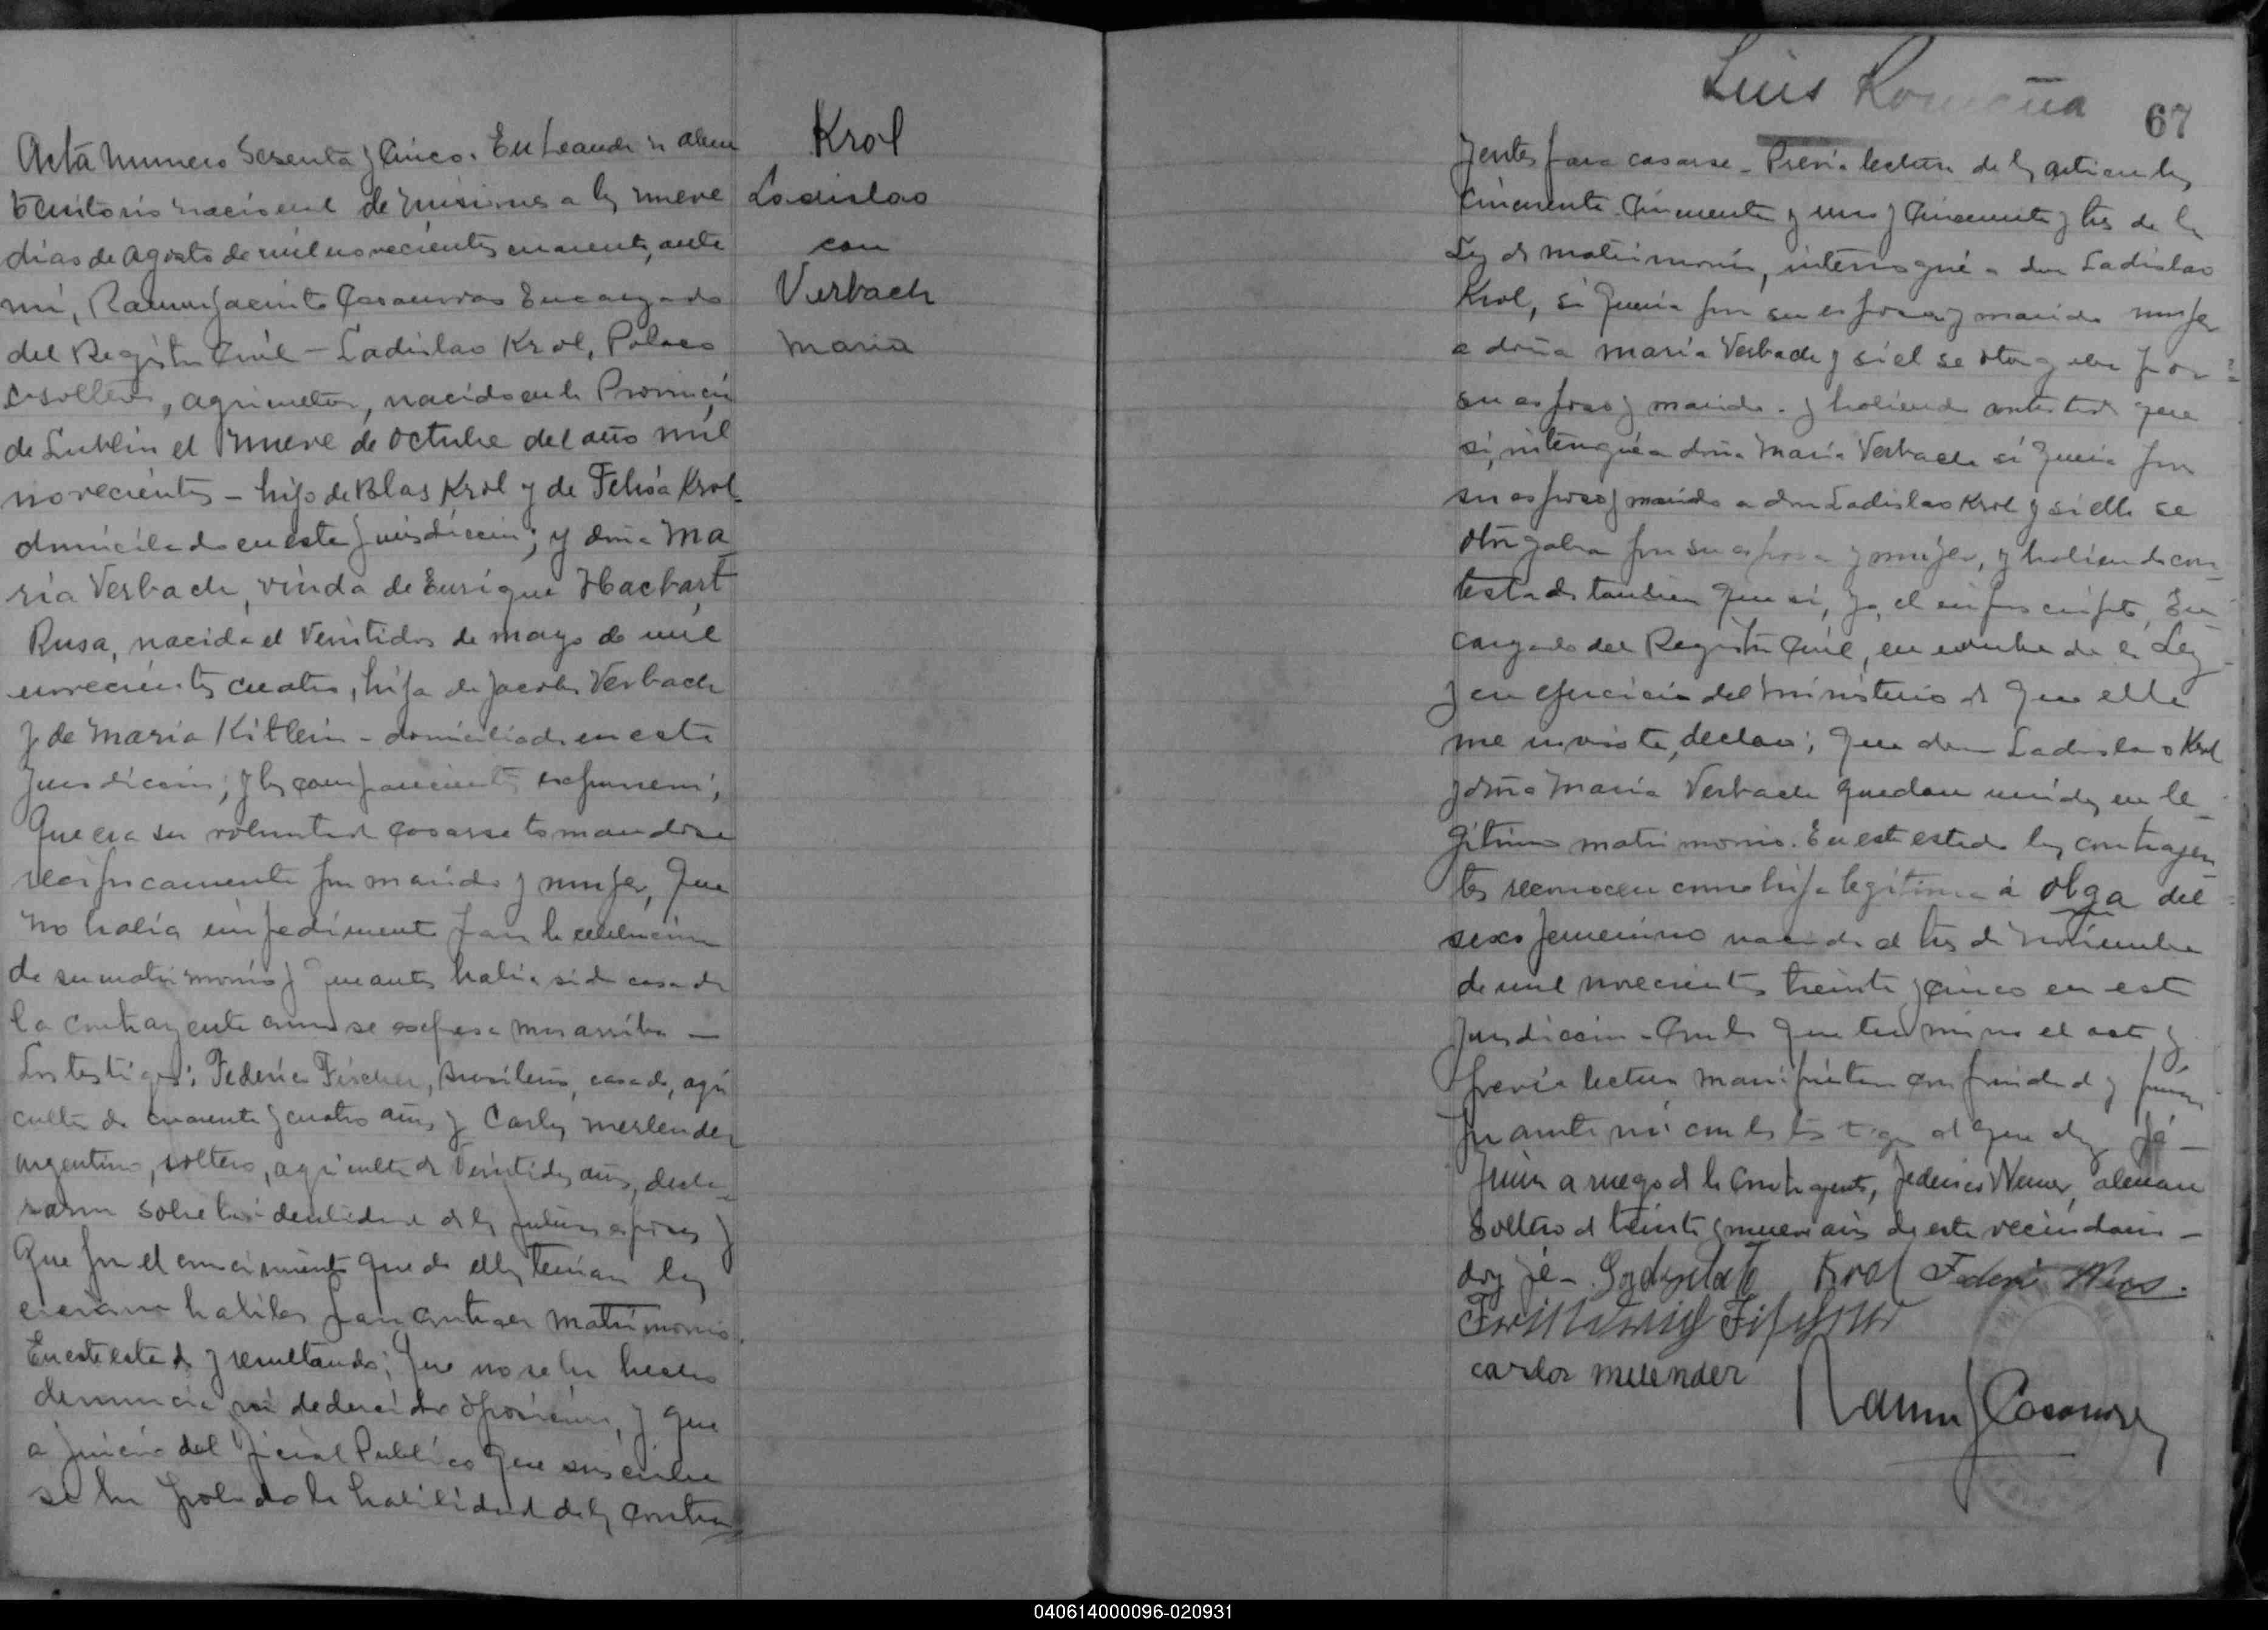 Acta numero Sesenta y Cinco. En Leandro n alem
territorio nacional de misiones a los nueve
dias de agosto de mil novecientos cuarenta, ante
mi, Ramon Jacinto Casanovas Encargado
del Registro Civil - Ladislao Krol, Polaco
soltero, agricultor, nacido en la Provincia
de Lublin el nueve de octubre del año mil
novecientos - hijo de Blas Krol y de Felisa Krol
domiciliado en esta jurisdiccion; y doña Ma
ria Verbach, viuda de Enrique Hachart
Rusa, nacida el Veintidos de mayo de mil
novecientos cuatro, hija de Jacobo Verbach
y de Maria Kitlein - domiciliada en esta
jurisdiccion; y los comparecientes expusieron;
Que era su voluntad casarse tomandose
reciprocamente por marido y mujer, que
no habia impedimento para la celebracion
de su matrimonio y que antes habia sido casada
la contrayente como se expresa mas arriba -
Los testigos: Federico Fischer, brasileño, casado, agri
cultor de cuarenta y cuatro años y Carlos Melender
argentino, soltero, agricultor de Veintidos años, decla-
raron sobre la identidad de los futuros esposos y
Que por el conocimiento que de ellos tenian los
creian habiles para contraer matrimonio.
En este estado y resultando; Que no se ha hecho
denuncia ni deducido oposicion, y que
a juicio del oficial Publico que suscribe
se ha probado la habilidad de los contra
Krol
Ladislao
con
Verbach
Maria
Luis
67
yentes para casarse - Previa lectura de los articulos
Cincuenta Cincuenta y uno y Cincuenta y tres de la
Ley de matrimonio, interrogué a don Ladislao
Krol, si queria por su esposa y marido mujer
a doña Maria Verbach y si el se otorgaba por
su esposo y marido - y habiendo contestado que
si, interrogué a doña Maria Verbach si queria por
su esposo y marido a don Ladislao Krol y si ella se
otorgaba por su esposa y mujer, y habiendo con-
testado tambien que si, yo, el infrascripto, En-
cargado del Registro Civil, en nombre de la Ley
y en ejercicio del ministerio de que ella
me inviste, declaro; Que don Ladislao Krol
y doña Maria Verbach quedan unidos en le
gitimo matrimonio. En este estado los contrayen
tes reconocen como hija legitima á Olga del
sexo femenino nacida el tres de Noviembre
de mil novecientos treinta y cinco en esta
jurisdiccion - Con lo que termino el acta y
previa lectura manifiestan conformidad y firman
por ante mi con los testigos de que doy fé -
Firma a ruego de la Contrayente, Federico aleman
Soltero de treinta y nueve años de este vecindario -
doy fé - Krol
carlos melender
Ramon J Casanovas
040614000096-020931